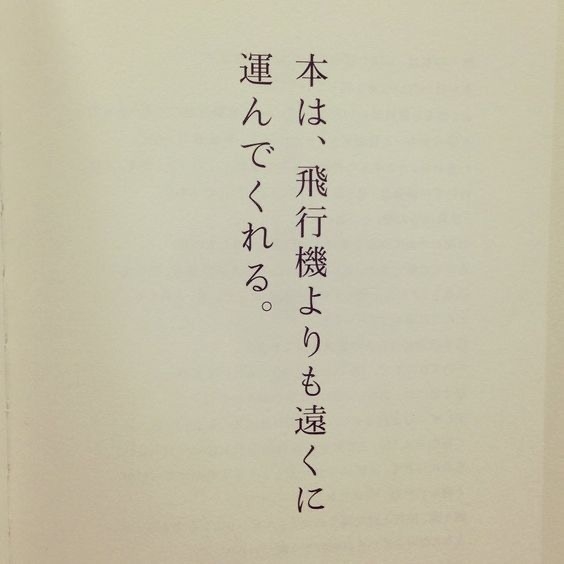 本は、飛行機よりも遠くに
運んでくれる。